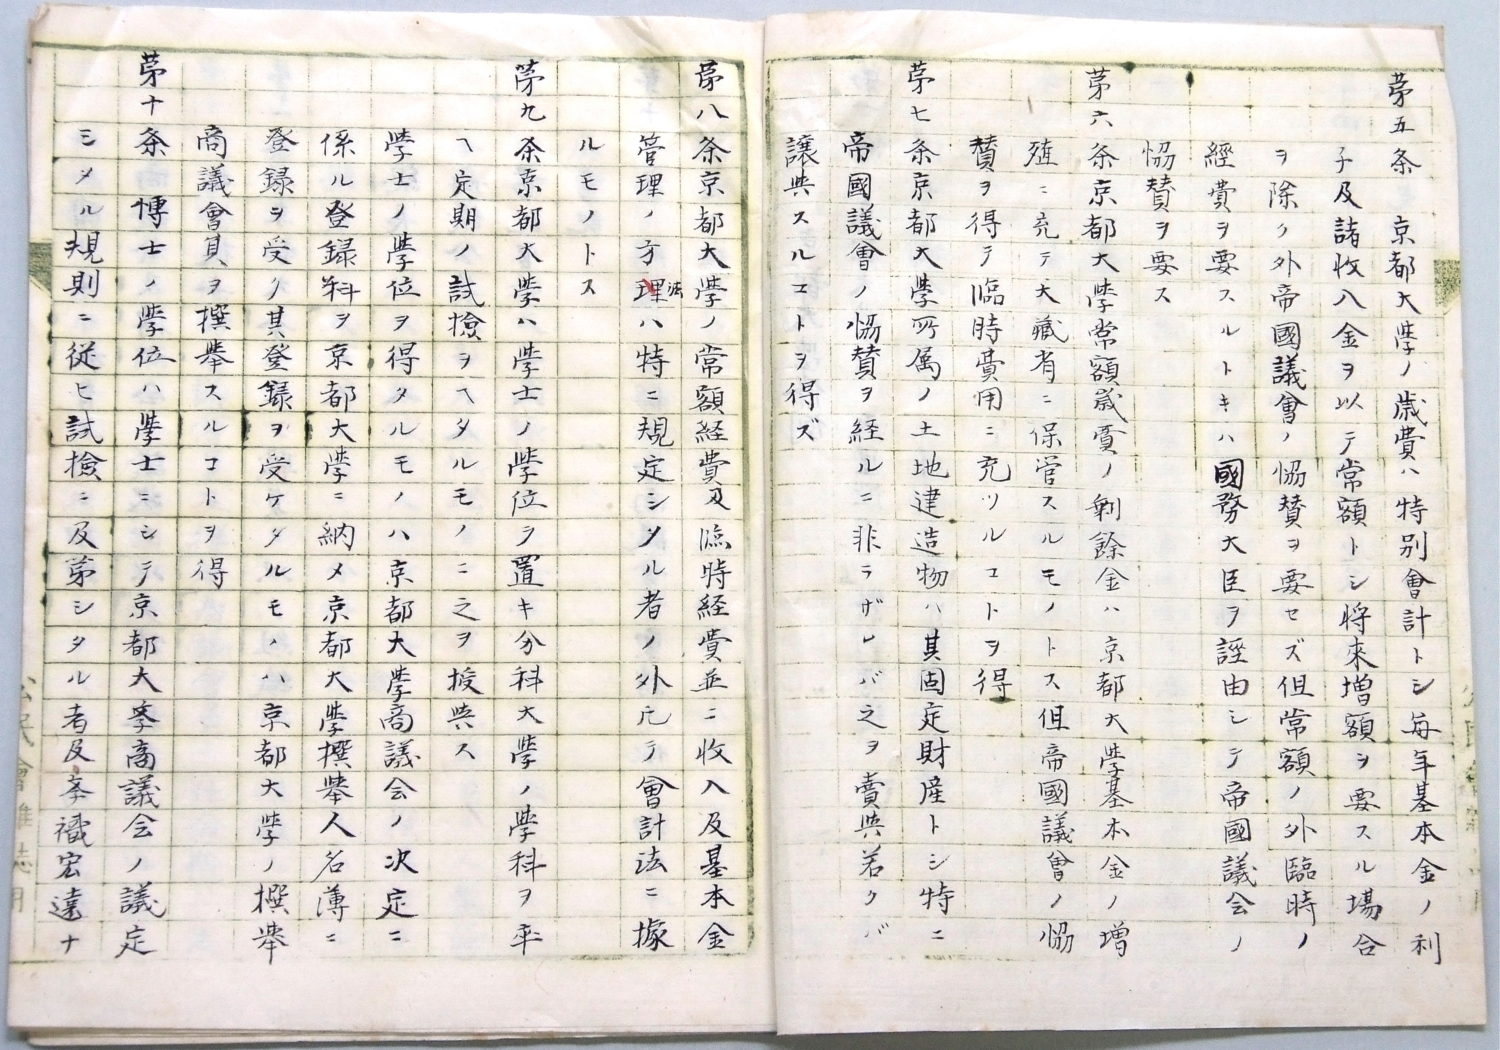 第五条　京都大学ノ歳費ハ特別會計トシ毎年基本金ノ利
子及諸收入金ヲ以テ常額トシ将來増額ヲ要スル場合
ヲ除ク外帝國議會ノ協賛ヲ要セズ但常額ノ外臨時ノ
經費ヲ要スルトキハ國務大臣ヲ證由シテ帝國議会ノ
協賛ヲ要ス
第六条京都大学常額歳費ノ剰餘金ハ京都大学基本金ノ増
殖ニ充テ大藏省ニ保管スルモノトス但帝國議會ノ協
賛ヲ得テ臨時費用ニ充ツルコトヲ得
第七条京都大學所属ノ土地建造物ハ其固定財産トシ特ニ
帝國議會ノ協賛ヲ経ルニ非ラザレバ之ヲ賣與若クバ
譲與スルコトヲ得ズ
第八条京都大學ノ常額経費及臨時経費並ニ收入及基本金
管理ノ方理法ハ特ニ規定シタル者ノ外凡テ會計法ニ據
ルモノトス
第九条京都大學ハ學士ノ學位ヲ置キ分科大學ノ學科ヲ卒
ヘ定期ノ試檢ヲヘタルモノニ之ヲ授與ス
學士ノ學位ヲ得タルモノハ京都大學商議会ノ次定ニ
係ル登録料ヲ京都大學ニ納メ京都大學撰擧人名薄ニ
登録ヲ受ク其登録ヲ受ケタルモノハ京都大學ノ撰擧
商議會員ヲ撰擧スルコトヲ得
第十条博士ノ學位ハ學士ニシテ京都大学商議会ノ議定
シタル規則ニ従ヒ試檢ニ及第シタル者及学識宏遠ナ
公民會雜誌用